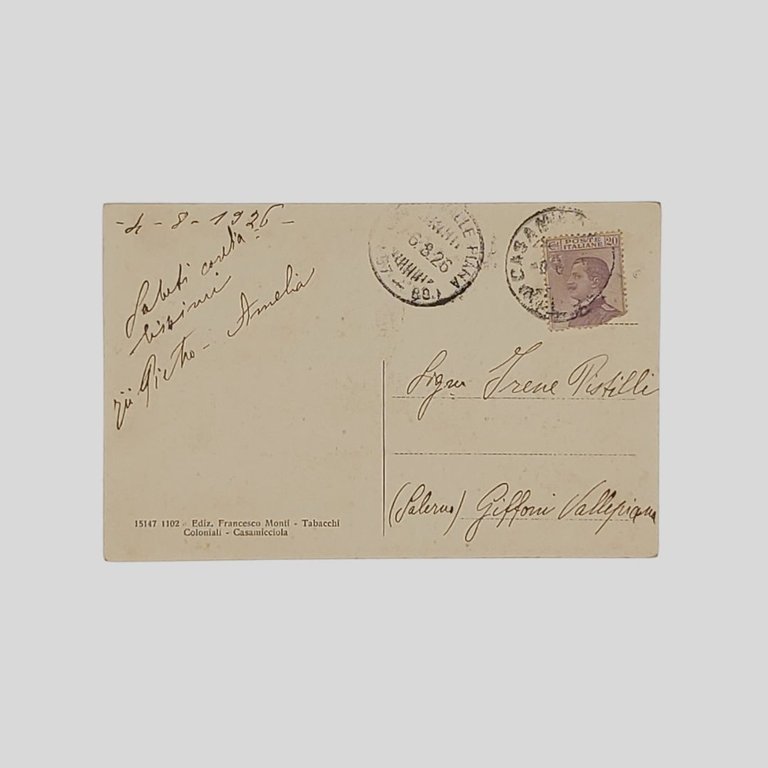 -4-8-1926-
Saluti cordia
lissimi
zii Pietro - Amelia
LLE PIANA
6.8.26
CASAMIC
POSTE
ITALIANE
20
Sign. Irene Pistilli
(Salerno) Giffoni Vallepiana
15147 1102 - Ediz. Francesco Monti - Tabacchi
Coloniali - Casamicciola